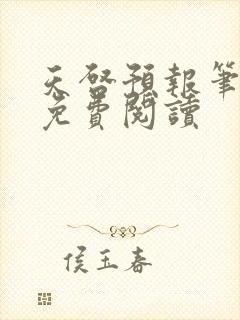 天啓預報筆
免費閱讀
侯玉春